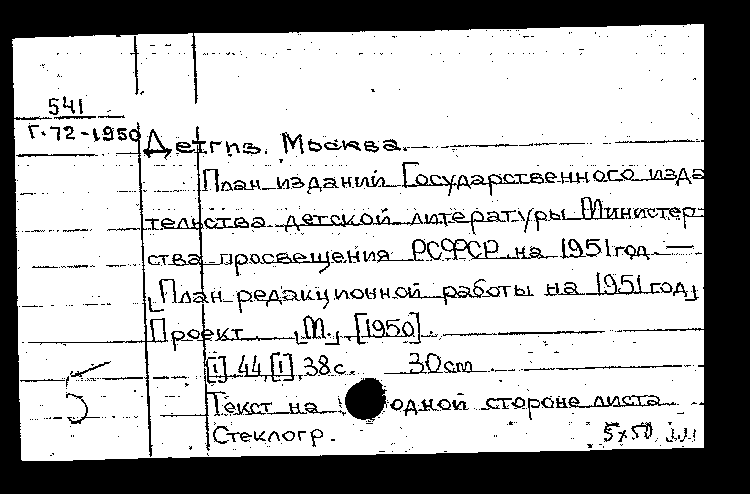 541
Г-72-1950
Детгиз. Москва.
План изданий Государственного изда
тельства детской литературы Министер-
ства просвещения РСФСР на 1951 год. —
[План редакционной работы на 1951 год]
Проект. [М.], [1950].
[1], 44, [1], 38 с. 30 см
Текст на одной стороне листа
Стеклогр.
5
5х50